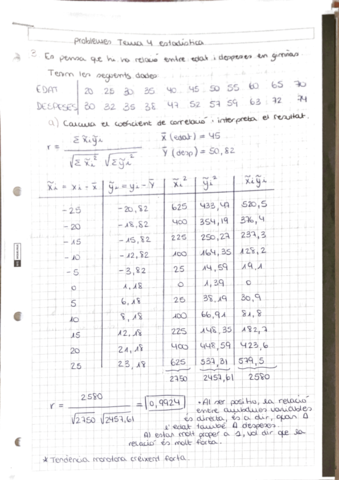 problemes Tema 4 estadística
2. Es pensa que hi ha relació entre edat i despeses en
Tenim les següents dades
EDAT 20 25 30 35 40 45 50 55 60 65 70
DESPESES 30 32 35 38 47 52 57 59 63 72 74
a) Calcula el coeficient de correlació i interpreta el resultat.
r = Σ x̃i ỹi / √Σ x̃i² √Σ ỹi²
x̄ (edat) = 45
ȳ (desp) = 50,82
x̃i = xi - x̄ ỹi = yi - ȳ x̃i² ỹi² x̃i ỹi
-25 -20,82 625 433,47 520,5
-20 -18,82 400 354,19 376,4
-15 -15,82 225 250,27 237,3
-10 -12,82 100 164,35 128,2
-5 -3,82 25 14,59 19,1
0 1,18 0 1,39 0
5 6,18 25 38,19 30,9
10 8,18 100 66,91 81,8
15 12,18 225 148,35 182,7
20 21,18 400 448,59 423,6
25 23,18 625 537,31 579,5
2750 2457,61 2580
r = 2580 / √2750 √2457,61 = 0,9924
• Al ser positiu, la relació
entre ambdues variables
és directa, és a dir, quan ↑
l'edat també ↑ despeses.
Al estar molt proper a 1, vol dir que la
relació és molt forta.
* Tendència monotona creixent forta.